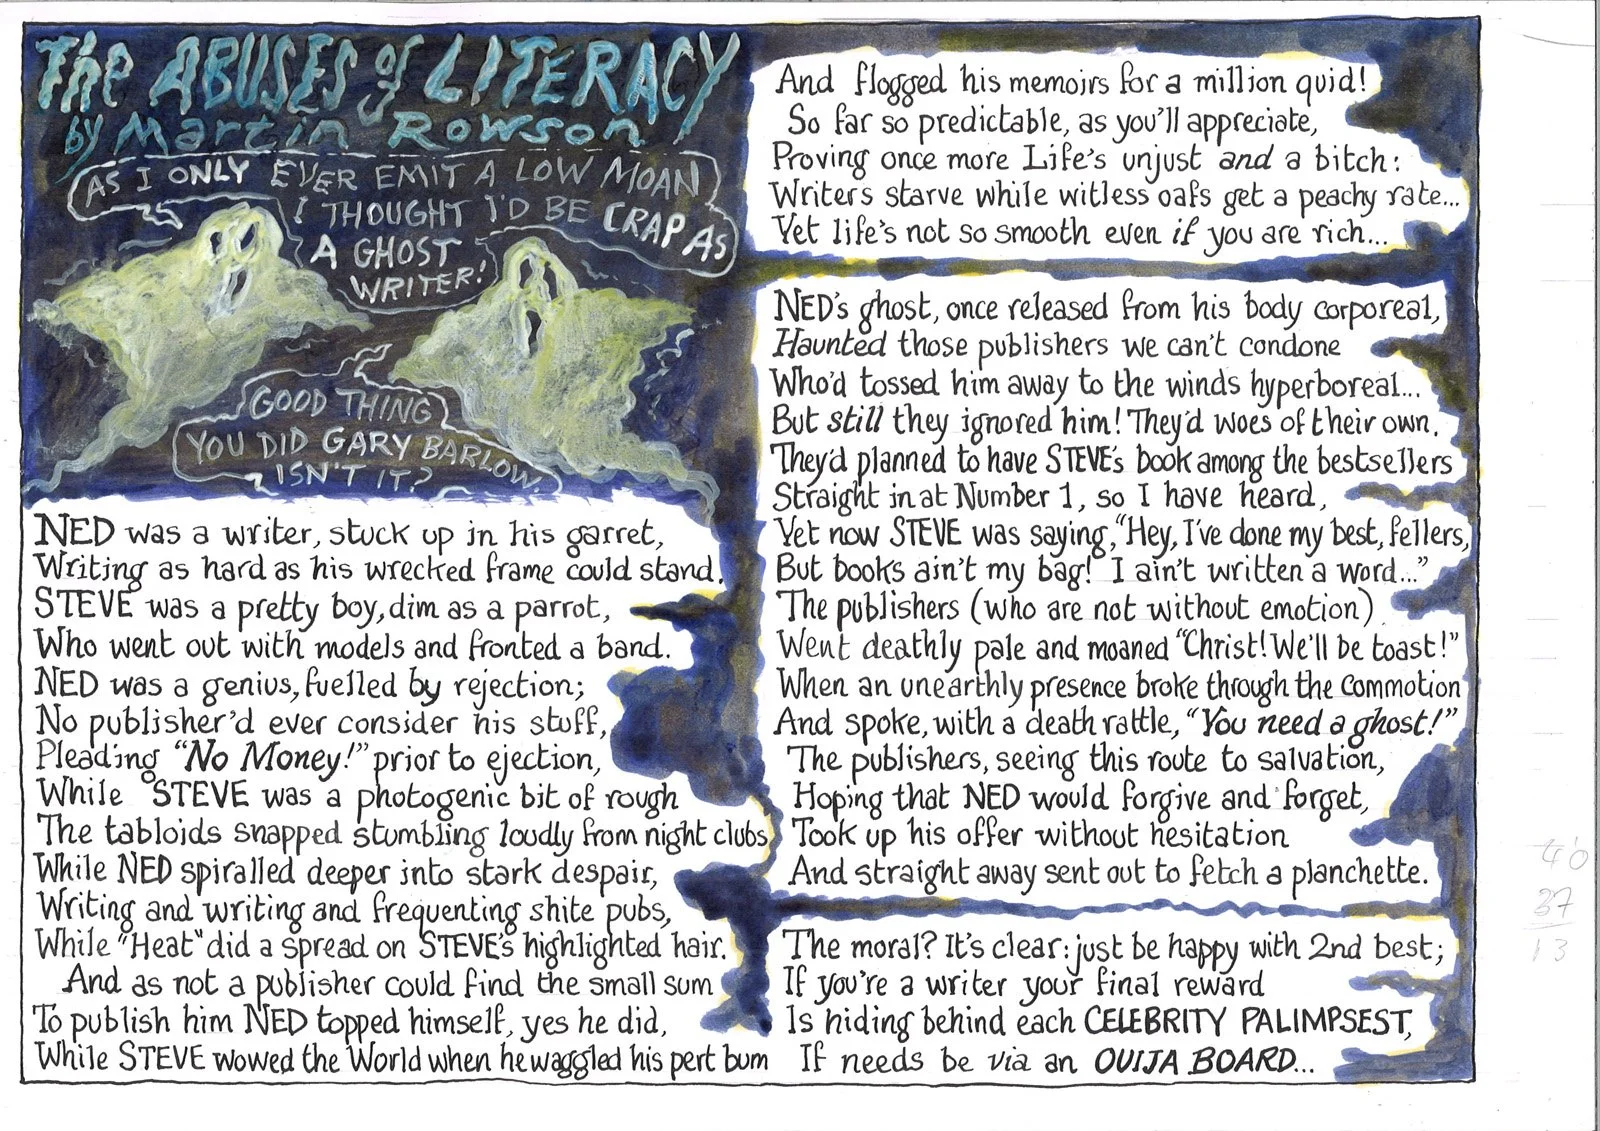 The ABUSES of LITERACY
by Martin Rowson
AS I ONLY EVER EMIT A LOW MOAN
I THOUGHT I'D BE CRAP AS
A GHOST
WRITER!
GOOD THING
YOU DID GARY BARLOW,
ISN'T IT?
NED was a writer, stuck up in his garret,
Writing as hard as his wrecked frame could stand.
STEVE was a pretty boy, dim as a parrot,
Who went out with models and fronted a band.
NED was a genius, fuelled by rejection;
No publisher'd ever consider his stuff,
Pleading "No Money!" prior to ejection,
While STEVE was a photogenic bit of rough
The tabloids snapped stumbling loudly from night clubs
While NED spiralled deeper into stark despair,
Writing and writing and frequenting shite pubs,
While "Heat" did a spread on STEVE's highlighted hair.
And as not a publisher could find the small sum
To publish him NED topped himself, yes he did,
While STEVE wowed the World when he waggled his pert bum
And flogged his memoirs for a million quid!
So far so predictable, as you'll appreciate,
Proving once more Life's unjust and a bitch:
Writers starve while witless oafs get a peachy rate...
Yet life's not so smooth even if you are rich...
NED's ghost, once released from his body corporeal,
Haunted those publishers we can't condone
Who'd tossed him away to the winds hyperboreal...
But still they ignored him! They'd woes of their own.
They'd planned to have STEVE's book among the bestsellers
Straight in at Number 1, so I have heard,
Yet now STEVE was saying, "Hey, I've done my best, fellers,
But books ain't my bag! I ain't written a word..."
The publishers (who are not without emotion)
Went deathly pale and moaned "Christ! We'll be toast!"
When an unearthly presence broke through the commotion
And spoke, with a death rattle, "You need a ghost!"
The publishers, seeing this route to salvation,
Hoping that NED would forgive and forget,
Took up his offer without hesitation
And straight away sent out to fetch a planchette.
The moral? It's clear: just be happy with 2nd best;
If you're a writer your final reward
Is hiding behind each CELEBRITY PALIMPSEST,
If needs be via an OUIJA BOARD...
40
37
13